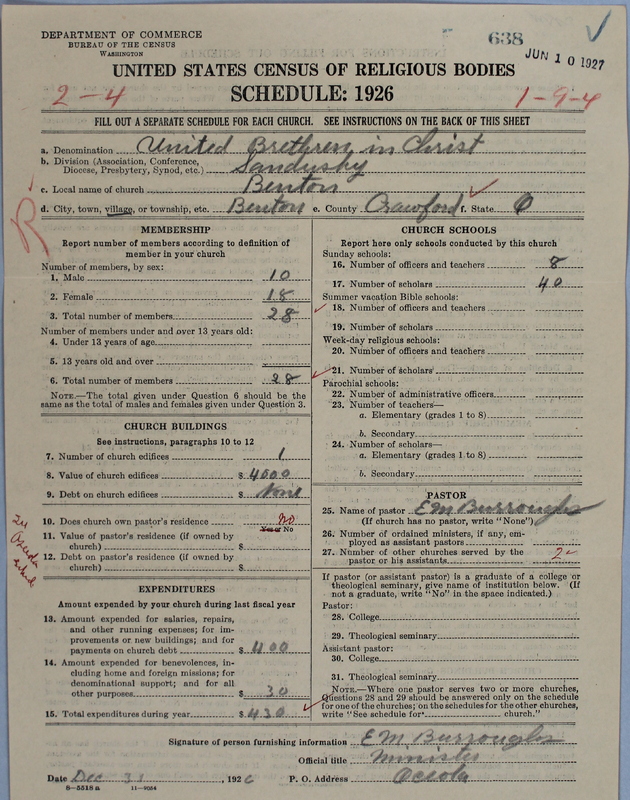 DEPARTMENT OF COMMERCE
BUREAU OF THE CENSUS
WASHINGTON
638
JUN 10 1927
UNITED STATES CENSUS OF RELIGIOUS BODIES
2-4
SCHEDULE: 1926
1-9-4
FILL OUT A SEPARATE SCHEDULE FOR EACH CHURCH. SEE INSTRUCTIONS ON THE BACK OF THIS SHEET
a. Denomination United Brethren in Christ
b. Division (Association, Conference, Diocese, Presbytery, Synod, etc.) Sandusky
c. Local name of church Benton
d. City, town, village, or township, etc. Benton e. County Crawford f. State O
R
MEMBERSHIP
Report number of members according to definition of
member in your church
Number of members, by sex:
1. Male 10
2. Female 18
3. Total number of members 28
Number of members under and over 13 years old:
4. Under 13 years of age
5. 13 years old and over
6. Total number of members 28
NOTE.—The total given under Question 6 should be the
same as the total of males and females given under Question 3.
CHURCH BUILDINGS
See instructions, paragraphs 10 to 12
7. Number of church edifices 1
8. Value of church edifices $ 4000
9. Debt on church edifices $ None
10. Does church own pastor's residence no
Yes or No
11. Value of pastor's residence (if owned by
church) $
12. Debt on pastor's residence (if owned by
church) $
EXPENDITURES
Amount expended by your church during last fiscal year
13. Amount expended for salaries, repairs,
and other running expenses; for im-
provements or new buildings; and for
payments on church debt $ 400
14. Amount expended for benevolences, in-
cluding home and foreign missions; for
denominational support; and for all
other purposes $ 30
15. Total expenditures during year $ 430
CHURCH SCHOOLS
Report here only schools conducted by this church
Sunday schools:
16. Number of officers and teachers 8
17. Number of scholars 40
Summer vacation Bible schools:
18. Number of officers and teachers
19. Number of scholars
Week-day religious schools:
20. Number of officers and teachers
21. Number of scholars
Parochial schools:
22. Number of administrative officers
23. Number of teachers—
a. Elementary (grades 1 to 8)
b. Secondary
24. Number of scholars—
a. Elementary (grades 1 to 8)
b. Secondary
PASTOR
25. Name of pastor E M Burroughs
(If church has no pastor, write "None")
26. Number of ordained ministers, if any, em-
ployed as assistant pastors
27. Number of other churches served by the
pastor or his assistants 2
If pastor (or assistant pastor) is a graduate of a college or
theological seminary, give name of institution below. (If
not a graduate, write "No" in the space indicated.)
Pastor:
28. College
29. Theological seminary
Assistant pastor:
30. College
31. Theological seminary
NOTE.—Where one pastor serves two or more churches,
Questions 28 and 29 should be answered only on the schedule
for one of the churches; on the schedules for the other churches,
write "See schedule for church."
Signature of person furnishing information E M Burroughs
Official title Minister
Date Dec 31, 1926 P. O. Address Oceola
8—5518 a 11—9084